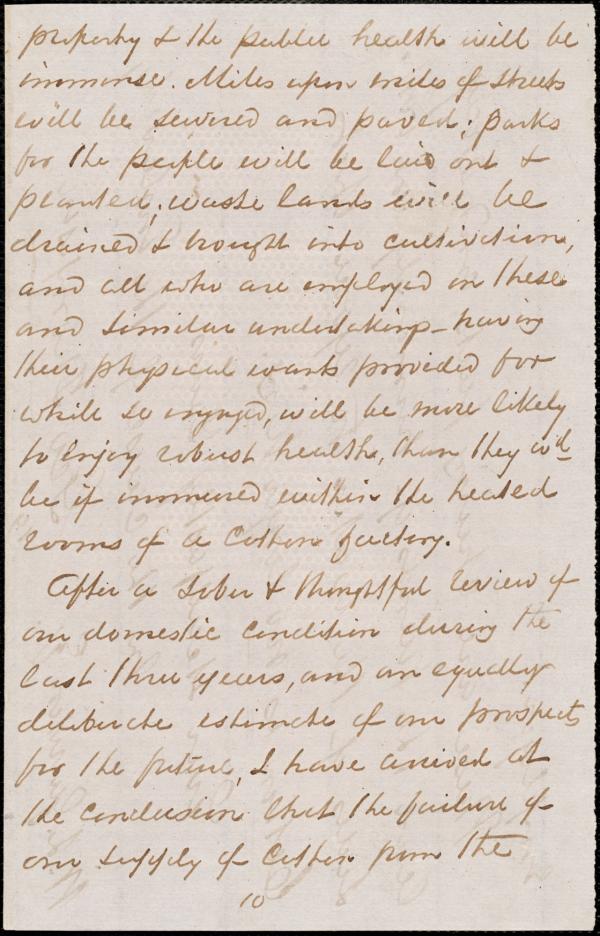 property & the public health will be
immense. Miles upon miles of streets
will be sewered and paved; parks
for the people will be laid out &
planted; waste lands will be
drained & brought into cultivation,
and all who are employed on these
and similar undertakings – having
their physical wants provided for
while so engaged, will be more likely
to enjoy robust health, than they wd
be if immured within the heated
rooms of a Cotton factory.
After a sober & thoughtful review of
our domestic condition during the
last three years, and an equally
deliberate estimate of our prospects
for the future, I have arrived at
the conclusion that the failure of
our supply of Cotton from the
10